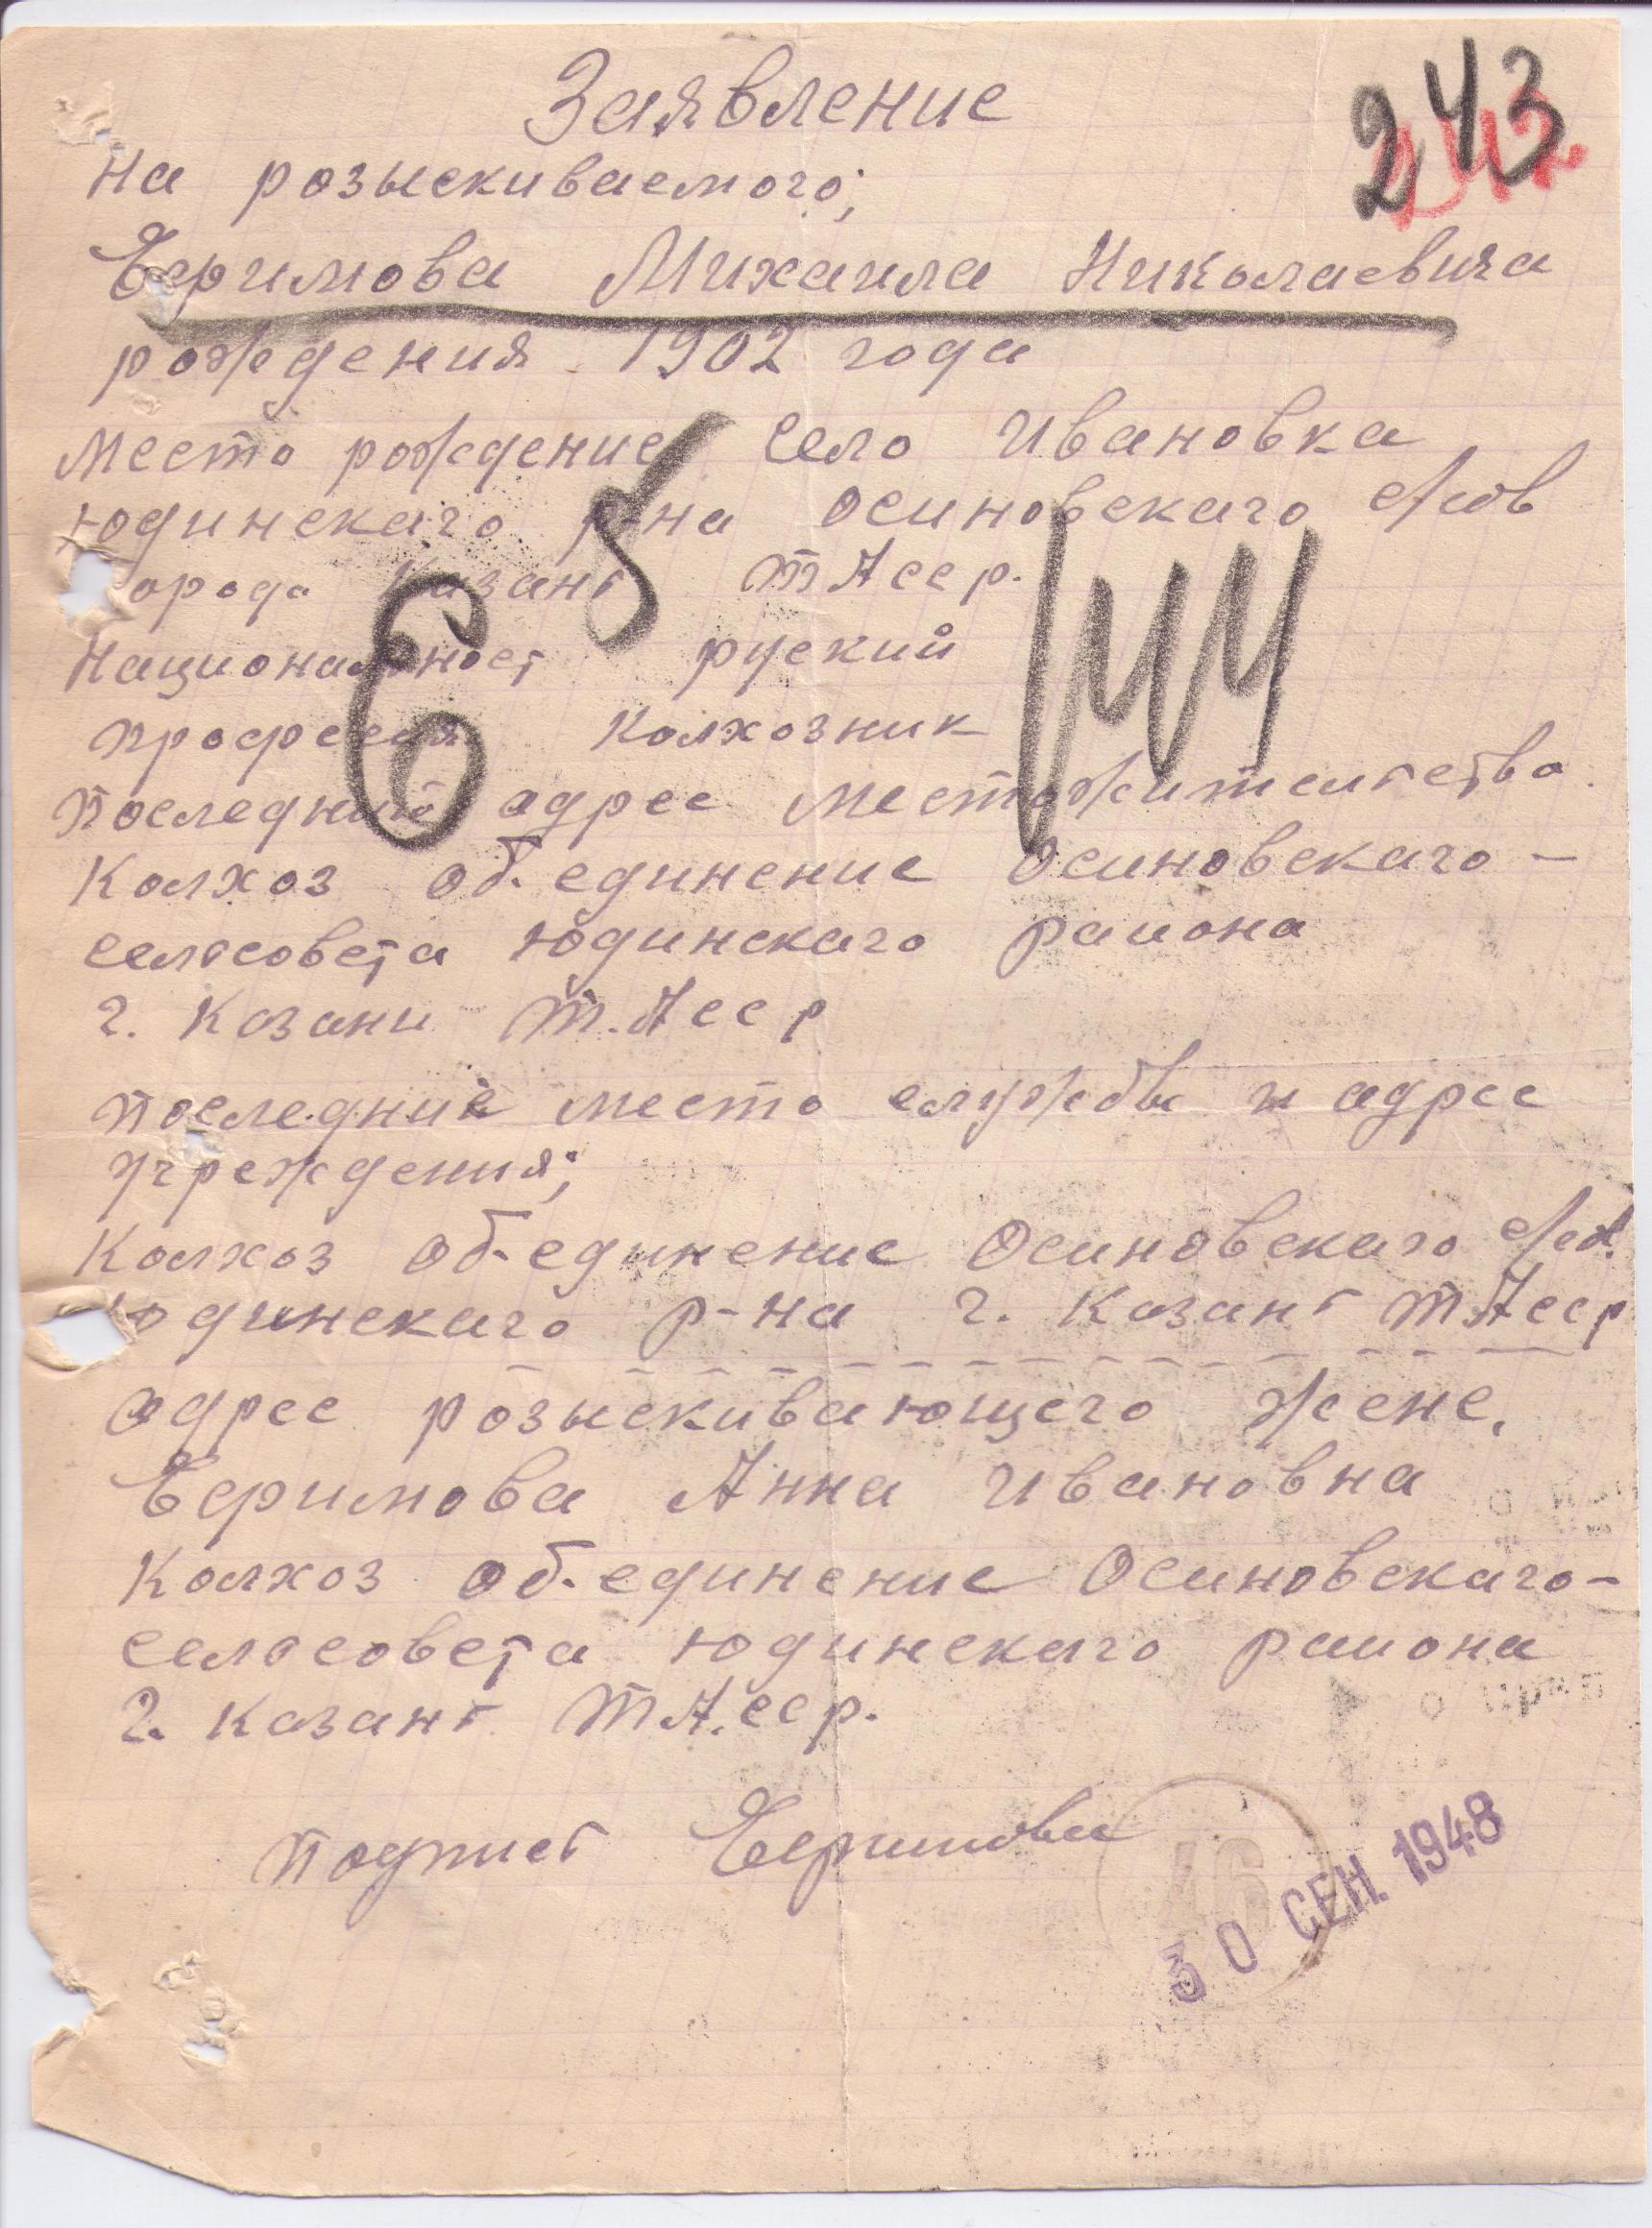 Заявление
243
на розыскиваемого;
Ефимова Михаила Николаевича
рождения 1902 года
Место рождение село Ивановка
юдинскаго р-на осиновскаго с/сов
города Казань ТАССР.
Национальност руский
професия Колхозник
Последний адрес местожительства
Колхоз об-единение Осиновскаго -
сельсовета Юдинскаго раиона
г. Казани Т.АССР
последние место службы и адрес
учреждения;
Колхоз об-единение Осиновскаго с/сов.
юдинскаго р-на г. Казань Т.АССР
адрес розыскивающего жене.
Ефимова Анна Ивановна
Колхоз об-единение Осиновскаго-
сельсовета юдинскаго раиона
г. Казань ТА.ССР.
подпись Ефимова
46
30 СЕН. 1948